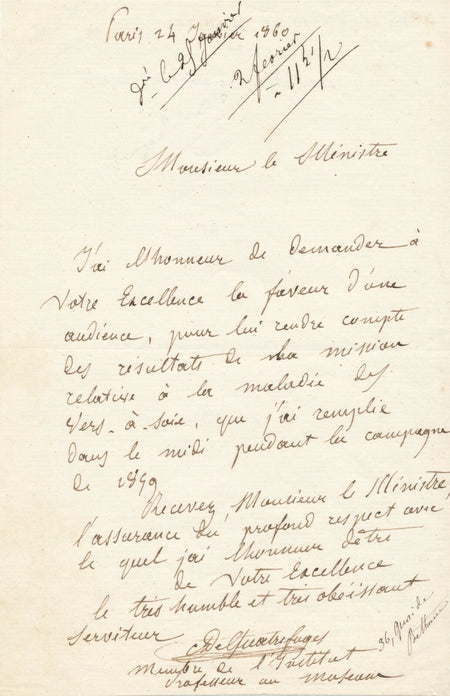 Paris 24 Janvier 1860
le 25 Janvier
2 fevrier
- 11h 1/2
Monsieur le Ministre
J'ai l'honneur de demander à
Votre Excellence la faveur d'une
audience, pour lui rendre compte
des résultats de la mission
relative à la maladie des
Vers-à-soie, que j'ai remplie
dans le midi pendant la campagne
de 1859
Recevez, Monsieur le Ministre,
l'assurance du profond respect avec
le quel j'ai l'honneur d'être
de Votre Excellence
le très humble et très obéissant
serviteur
A de Quatrefages
membre de l'Institut
Professeur au museum
36, Quai de
Béthune